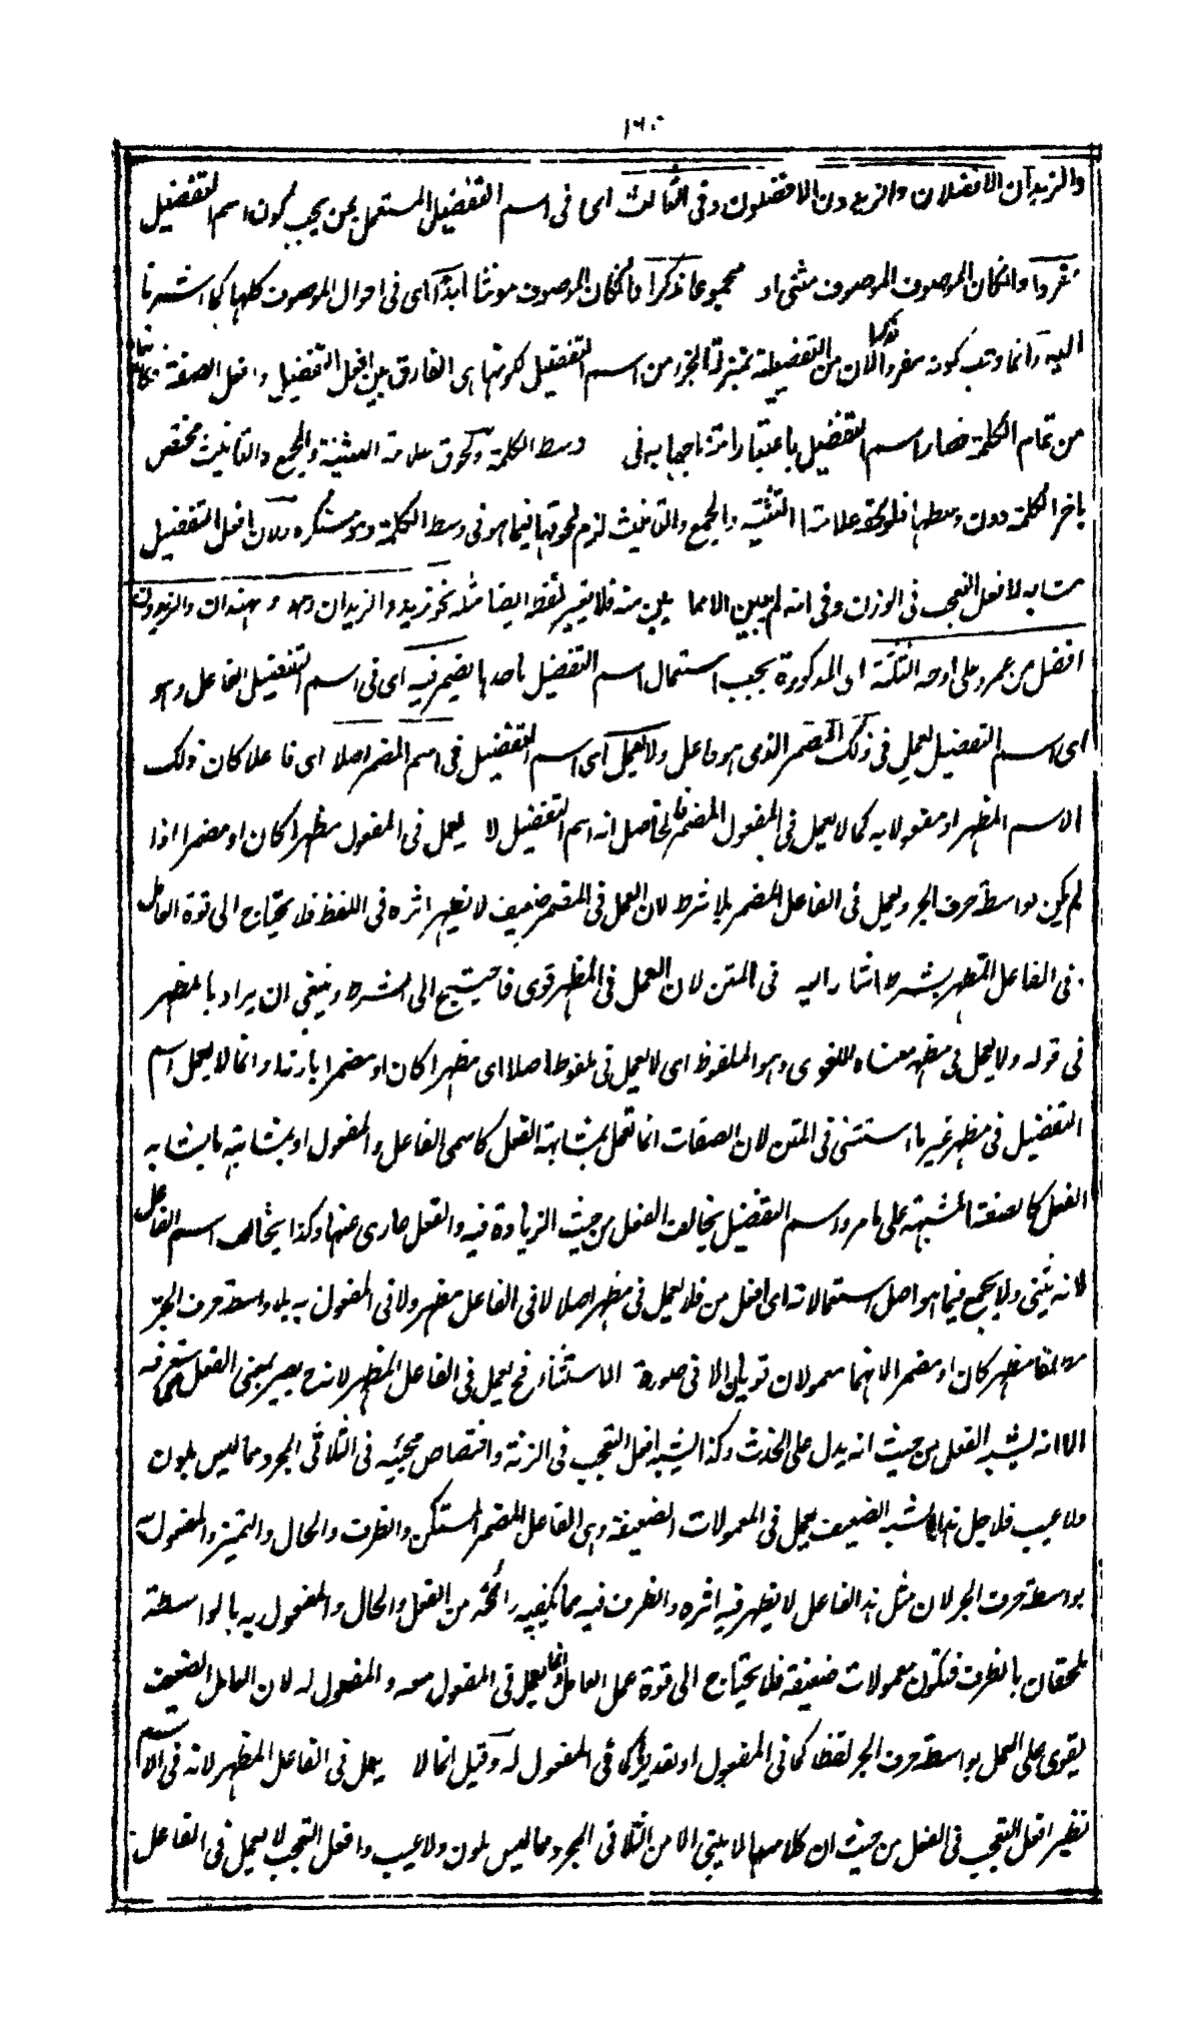 ١٦٠
والزيدان الافضلان والزيدون الافضلون وفى الثالث اى فى اسم التفضيل المستعمل بمن يجب كون اسم التفضيل
مفردا وانكان الموصوف مثنى او مجموعا مذكرا وانكان الموصوف مونثا ابدا اى فى احوال الموصوف كلها كما اشرنا
اليه وانما وجب كونه مفردا مذكرا لان من التفضيلية بمنزلة الجزء من اسم التفضيل لكونها هى الفارق بين افعل التفضيل وافعل الصفة فكانها
من تمام الكلمة فصار اسم التفضيل باعتبار امتزاجها به فى وسط الكلمة ولحوق علامة التثنية والجمع والتانيث مختص
باخر الكلمة دون وسطها فلو لحقه علامة التثنية والجمع والتانيث لزم لحوقها فيما هو فى وسط الكلمة وهو مستكره ولان افعل التفضيل
مشابه لافعل التعجب فى الوزن وفى انه لم يبن الا مما يبنى منه فلا يغير لفظه ايضا مثله نحو زيد والزيدان وهند و هندان والزيدون
افضل من عمرو على اوجه الثلثة اى المذكورة يجب استعمال اسم التفضيل باحدها يضمر فيه اى فى اسم التفضيل الفاعل وهو
اى اسم التفضيل يعمل فى ذلك المضمر الذى هو فاعل ولا يعمل اى اسم التفضيل فى اسم المظهر اصلا اى فاعلا كان ذلك
الاسم المظهر او مفعولا به كما لا يعمل فى المفعول المضمر فالحاصل انه اسم التفضيل لا يعمل فى المفعول مظهرا كان او مضمرا اذا
لم يكن بواسطة حرف الجر ويعمل فى الفاعل المضمر بلا شرط لان العمل فى المضمر ضعيف لا يظهر اثره فى اللفظ فلا يحتاج الى قوة العامل
فى الفاعل المظهر بشرط اشار اليه فى المتن لان العمل فى المظهر قوى فاحتيج الى الشرط وينبغى ان يراد بالمظهر
فى قوله ولا يعمل فى مظهر معناه اللغوى وهو الملفوظ اى لا يعمل فى ملفوظ اصلا اى مظهرا كان او مضمرا بارزا وانما لا يعمل اسم
التفضيل فى مظهر غير ما استثنى فى المتن لان الصفات انما تعمل بمشابهة الفعل كاسمى الفاعل والمفعول او بمشابهة ما يشابه
الفعل كالصفة المشبهة على ما مر واسم التفضيل يخالف الفعل من حيث الزيادة فيه والفعل عارى عنها وكذا يخالف اسم الفاعل
لانه يثنى ولا يجمع فيما هو اصل استعمالاته اى افعل من فلا يعمل فى مظهر اصلا لا فى الفاعل مظهر ولا فى المفعول به بلا واسطة حرف الجر
مظهر كان او مضمر الا انهما معمولان قويان الا فى صورة الاستثناء فح يعمل فى الفاعل المظهر لانه ح يصير بمعنى الفعل ستعرفه
الا انه يشبه الفعل من حيث انه يدل على الحدث وكذا يشبه افعل التعجب فى الزنة واختصاص مجيئه فى الثلاثى المجرد مما ليس بلون
ولا عيب فلاجل هذا الشبه الضعيف يعمل فى المعمولات الضعيفة وهى الفاعل المضمر المستكن والظرف والحال والتميز والمفعول به
بواسطة حرف الجر لان مثل هذا الفاعل لا يظهر فيه اثره والظرف فيه مما يكفيه رائحة من الفعل والحال والمفعول به بالواسطة
يلحقان بالظرف فتكون معمولات ضعيفة فلا يحتاج الى قوة عمل العامل وانما يعمل فى المفعول معه والمفعول له لان العامل الضعيف
يقوى على العمل بواسطة حرف الجر لفظا كما فى المفعول او تقديرا كما فى المفعول له وقيل انما لا يعمل فى الفاعل المظهر لانه فى الاسم
نظير افعل التعجب فى الفعل من حيث ان كلا منهما لا يبنى الا من الثلاثى المجرد مما ليس بلون ولا عيب وافعل التعجب لا يعمل فى الفاعل